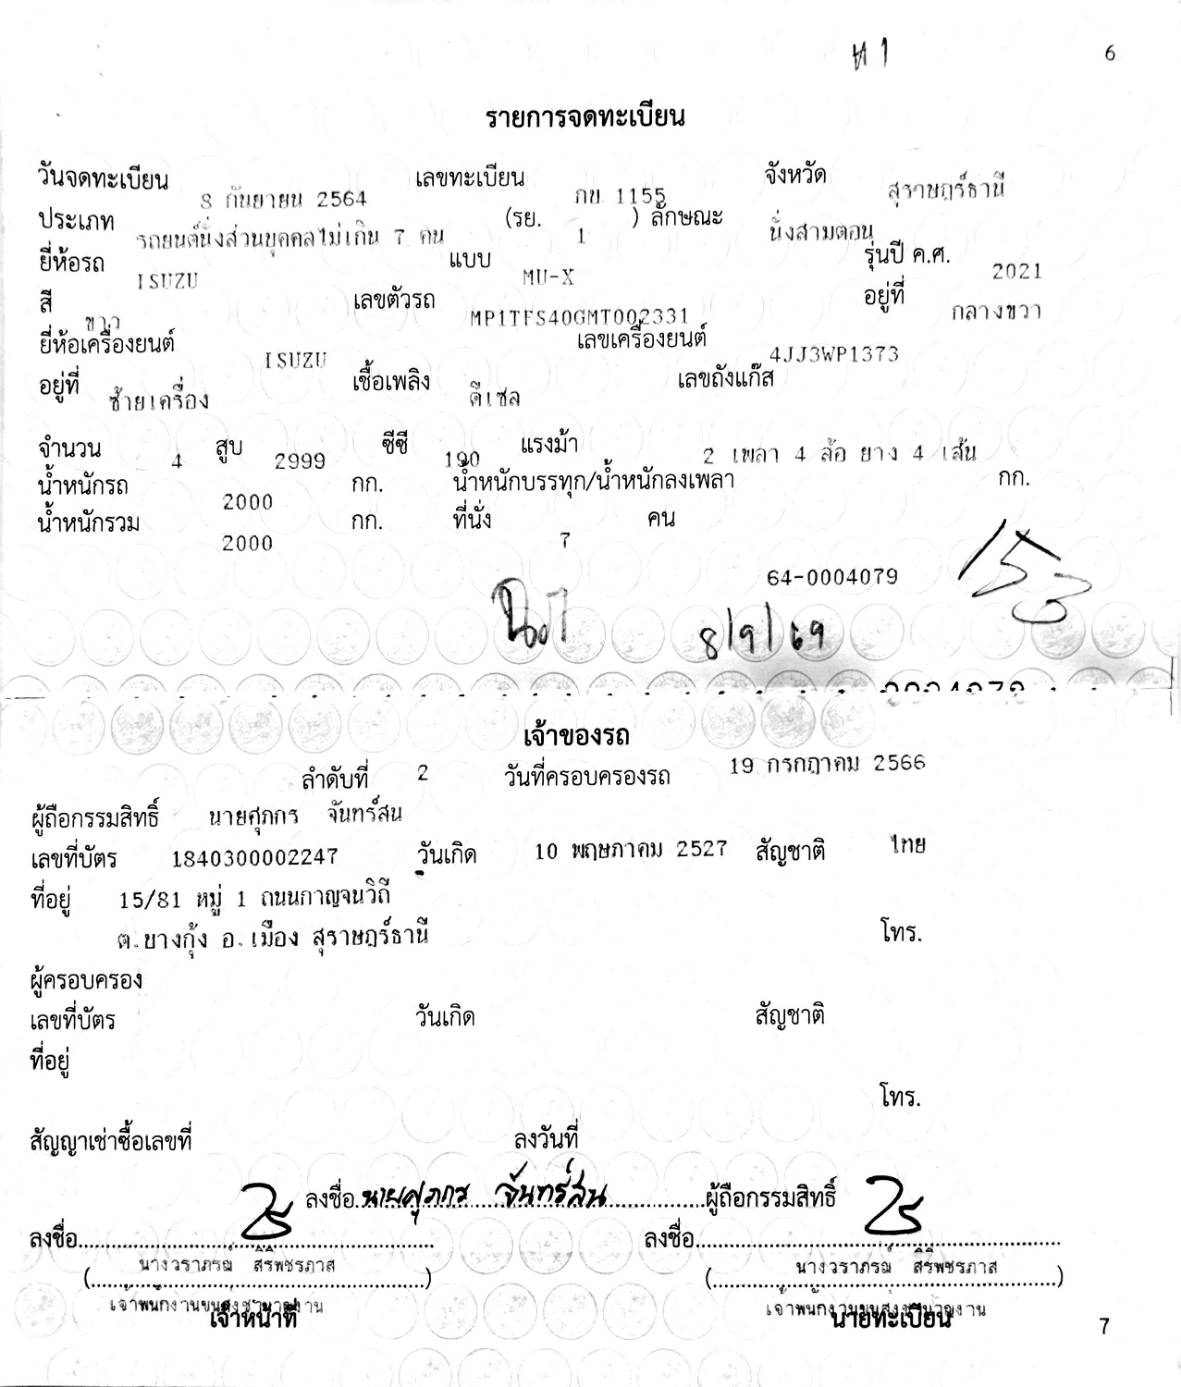 ท 1
6
รายการจดทะเบียน
วันจดทะเบียน 8 กันยายน 2564 เลขทะเบียน กข 1155 จังหวัด สุราษฎร์ธานี
ประเภท รถยนต์นั่งส่วนบุคคลไม่เกิน 7 คน (รย. 1 ) ลักษณะ นั่งสามตอน
ยี่ห้อรถ ISUZU แบบ MU-X รุ่นปี ค.ศ. 2021
สี ขาว เลขตัวรถ MP1TFS40GMT002331 อยู่ที่ กลางขวา
ยี่ห้อเครื่องยนต์ ISUZU เลขเครื่องยนต์ 4JJ3WP1373
อยู่ที่ ซ้ายเครื่อง เชื้อเพลิง ดีเซล เลขถังแก๊ส
จำนวน 4 สูบ 2999 ซีซี 190 แรงม้า 2 เพลา 4 ล้อ ยาง 4 เส้น
น้ำหนักรถ 2000 กก. น้ำหนักบรรทุก/น้ำหนักลงเพลา กก.
น้ำหนักรวม 2000 กก. ที่นั่ง 7 คน
64-0004079
153
8/9/69
เจ้าของรถ
ลำดับที่ 2 วันที่ครอบครองรถ 19 กรกฎาคม 2566
ผู้ถือกรรมสิทธิ์ นายศุภกร จันทร์สน
เลขที่บัตร 1840300002247 วันเกิด 10 พฤษภาคม 2527 สัญชาติ ไทย
ที่อยู่ 15/81 หมู่ 1 ถนนกาญจนวิถี
ต.บางกุ้ง อ.เมือง สุราษฎร์ธานี โทร.
ผู้ครอบครอง
เลขที่บัตร วันเกิด สัญชาติ
ที่อยู่
โทร.
สัญญาเช่าซื้อเลขที่ ลงวันที่
ลงชื่อ นายศุภกร จันทร์สน ผู้ถือกรรมสิทธิ์
ลงชื่อ ลงชื่อ
(นางวราภรณ์ สิริพชรภาส) (นางวราภรณ์ สิริพชรภาส)
เจ้าพนักงานขนส่งชำนาญงาน เจ้าพนักงานขนส่งชำนาญงาน
เจ้าหน้าที่ นายทะเบียน
7